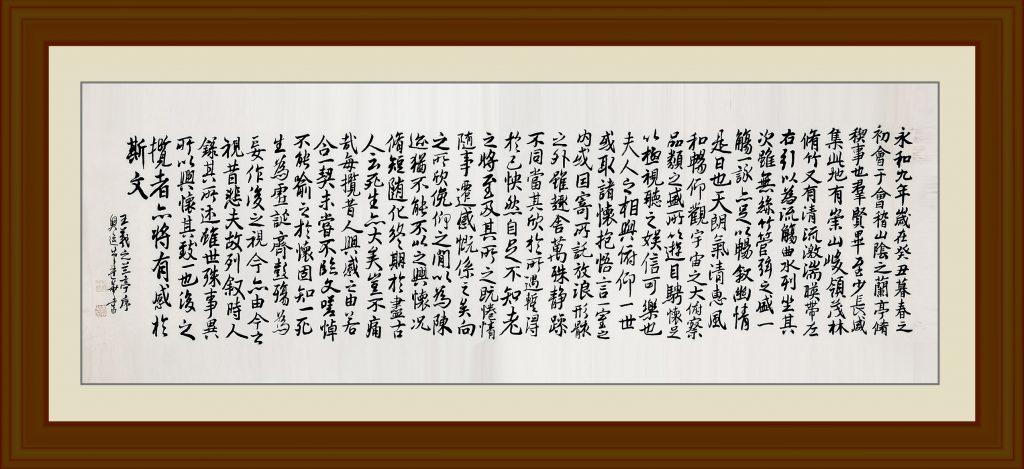 永和九年歲在癸丑暮春之
初會于會稽山陰之蘭亭脩
稧事也羣賢畢至少長咸
集此地有崇山峻領茂林
脩竹又有清流激湍暎帶左
右引以為流觴曲水列坐其
次雖無絲竹管弦之盛一
觴一詠亦足以暢叙幽情
是日也天朗氣清惠風
和暢仰觀宇宙之大俯察
品類之盛所以遊目騁懷足
以極視聽之娛信可樂也
夫人之相與俯仰一世
或取諸懷抱悟言一室之
内或因寄所託放浪形骸
之外雖趣舍萬殊静躁
不同當其欣於所遇暫得
於己怏然自足不知老
之將至及其所之既惓情
隨事遷感慨係之矣向
之所欣俛仰之間以為陳
迹猶不能不以之興懷況
脩短隨化終期於盡古
人云死生亦大矣豈不痛
哉每攬昔人興感之由若
合一契未嘗不臨文嗟悼
不能喻之於懷固知一死
生為虛誕齊彭殤為
妄作後之視今亦由今之
視昔悲夫故列叙時人
錄其所述雖世殊事異
所以興懷其致一也後之
攬者亦將有感於
斯文
王羲之兰亭序